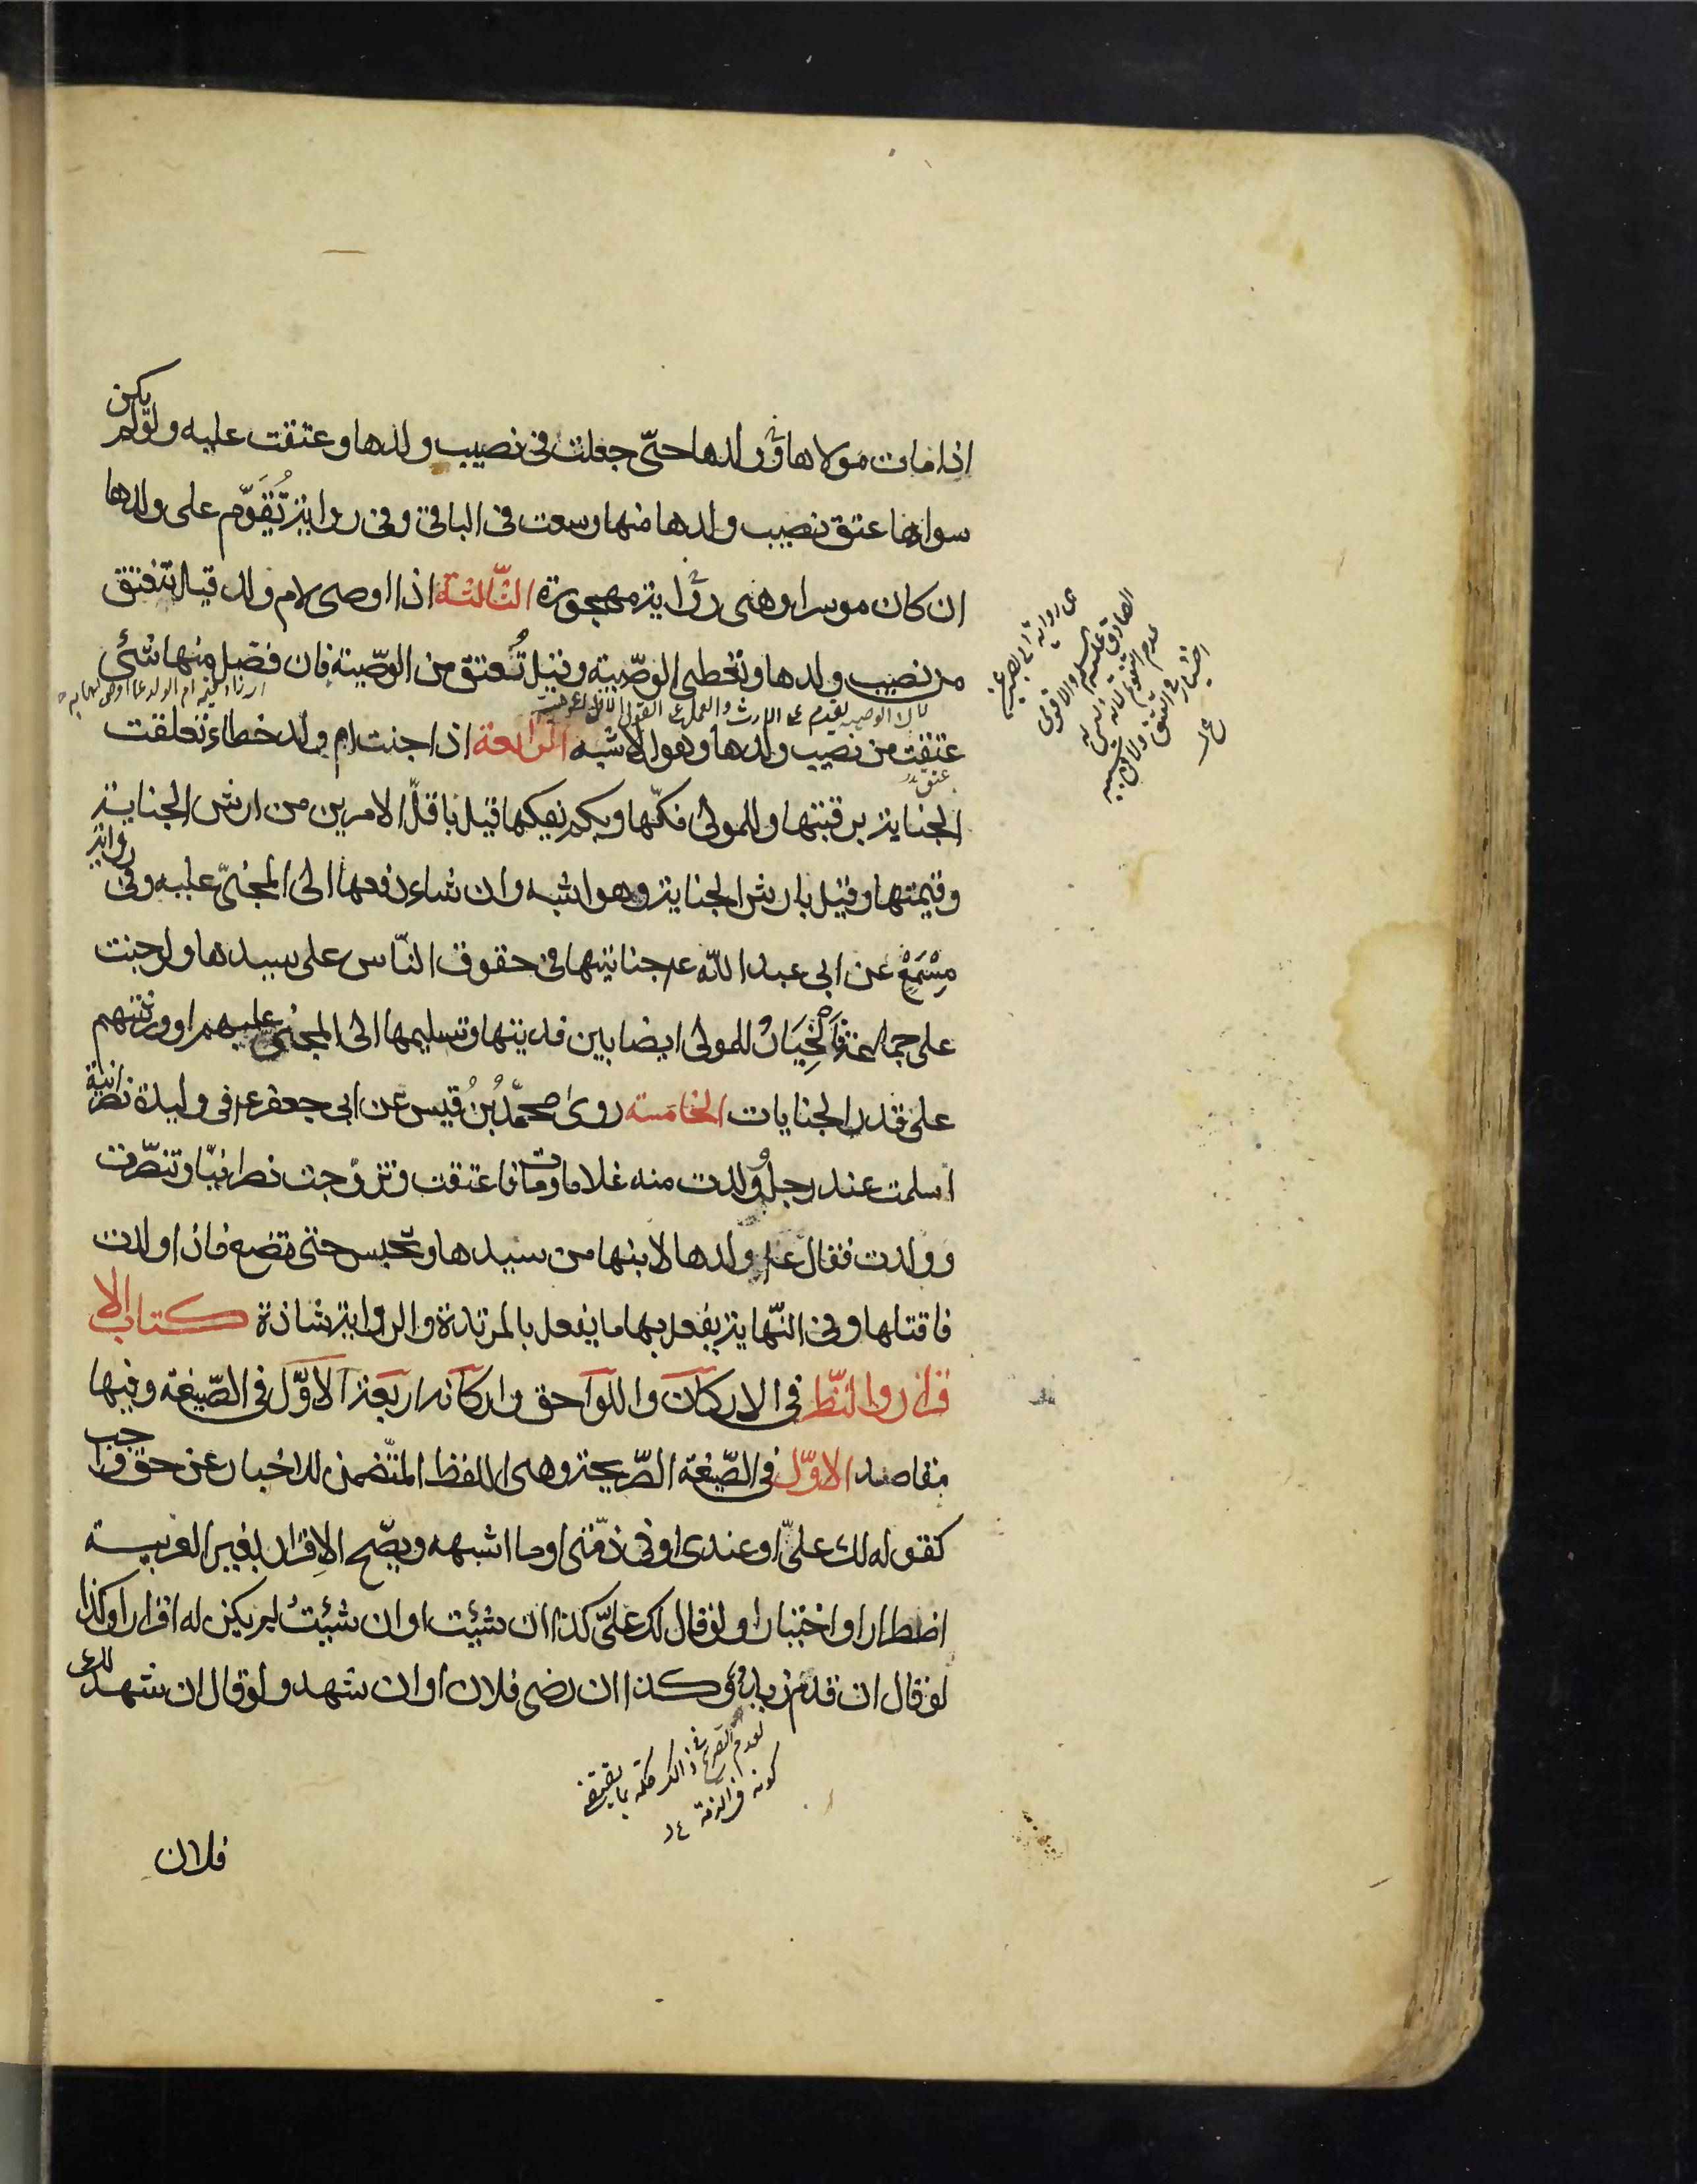 اذا مات مولاها وولدها حتّى جعلت فى نصيب ولدها وعتقت عليه ولو لم يكن
سواها عتق نصيب ولدها منها وسعت فى الباقى وفى رواية تُقَوّم على ولدها
ان كان موسرا وهى رواية مهجورة الثّالثة اذا اوصى لام ولد قيل تنعتق
من نصيب ولدها وتعطى الوصّية وقيل تُعتق من الوصّية فان فضل منها شئ
عتقت من نصيب ولدها وهو الاشبه الرّابعة اذا جنت ام ولد خطاء تعلقت
الجناية برقبتها وللمولى فكّها وبكم يفكها قيل باقلّ الامرين من ارش الجناية
وقيمتها وقيل بارش الجناية وهو اشبه وان شاء دفعها الى المجنىّ عليه وفى رواية
مِسْمَعْ عن ابى عبد اللّه ع جنايتها فى حقوق النّاس على سيدها ولو جنت
على جماعة فاَلخِيَارُ للمولى ايضا بين فديتها وتسليمها الى المجنىّ عليهم او ورثتهم
على قدر الجنايات الخامسة روى محمّدُ بْنُ قيس عن ابى جعفر ع فى وليدة نصرانية
اسلمت عند رجل وولدت منه غلاما ومات فاعتقت وتزوجت نصرانيّا وتنصّرت
وولدت فقال ع ولدها لابنها من سيدها وتحبس حتى تضع فاذا ولدت
فاقتلها وفى النّهاية يفعل بها ما يفعل بالمرتدة والرواية شاذة كتاب الا
قرار والنّظر فى الاركان واللواحق واركانه اربعة الاوّل فى الصّيغة وفيها
مقاصد الاوّل فى الصّيغة الصّريحة وهى اللفظ المتّضمن للاخبار عن حق واجب
كقوله لك علىّ او عندى او فى ذمّتى او ما اشبهه ويصّح الاِقرار بغير العربية
اضطرارا واختيارا ولو قال لك علىّ كذا ان شئت او ان شئتُ لم يكن له اقرارا وكذا
لو قال ان قدم زيد وكذا ان رضى فلان او ان شهد ولو قال ان شهد لك
لعدم التصريح
كونه فى الذمة
فلان